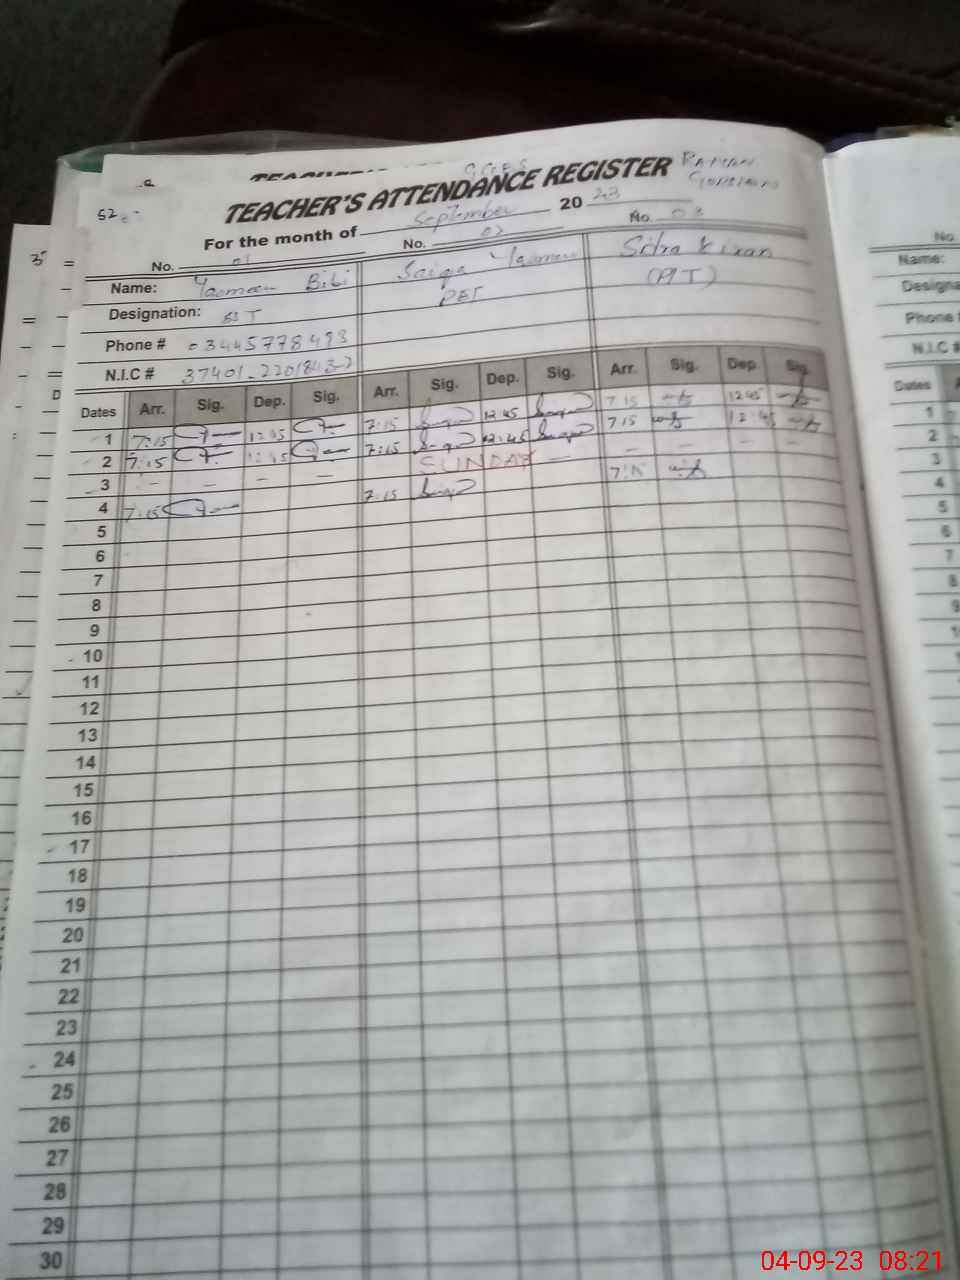 TEACHER'S ATTENDANCE REGISTER
For the month of September 2023
No. 01 No. 02 No. 03
Name: Yasmeen Bibi Saiqa Yasmeen Sitra Kiran
Designation: SST PET (AT)
Phone # 03445778493
N.I.C #
Dates Arr. Sig. Dep. Sig. Arr. Sig. Dep. Sig. Arr. Sig. Dep. Sig.
1 7:15 12:45 7:15 12:45 7:15 12:45
2 7:15 12:45 7:15 12:45 7:15 12:45
3 – – – – SUNDAY – – – – –
4 7:15 7:15 7:15
5
6
7
8
9
10
11
12
13
14
15
16
17
18
19
20
21
22
23
24
25
26
27
28
29
30
No.
Name:
Phone
N.I.C #
Dates
1
2
3
4
5
6
7
8
04-09-23 08:21